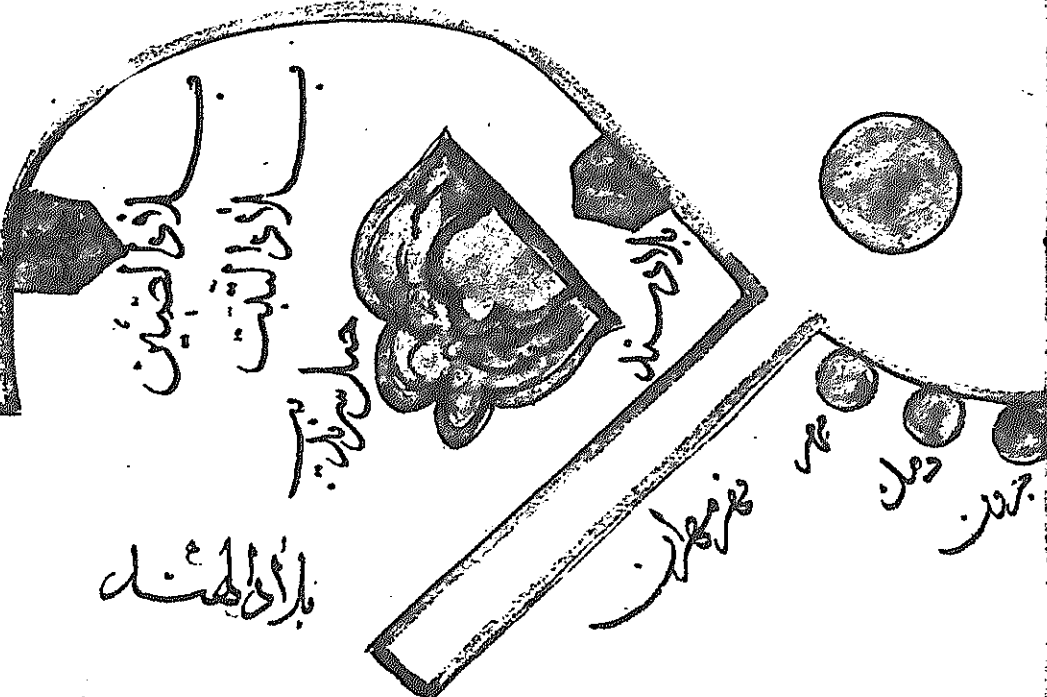 بلاد الصين
بلاد التبت
جبل سرنديب
بلاد سند
بلاد الهند
نهر مهران